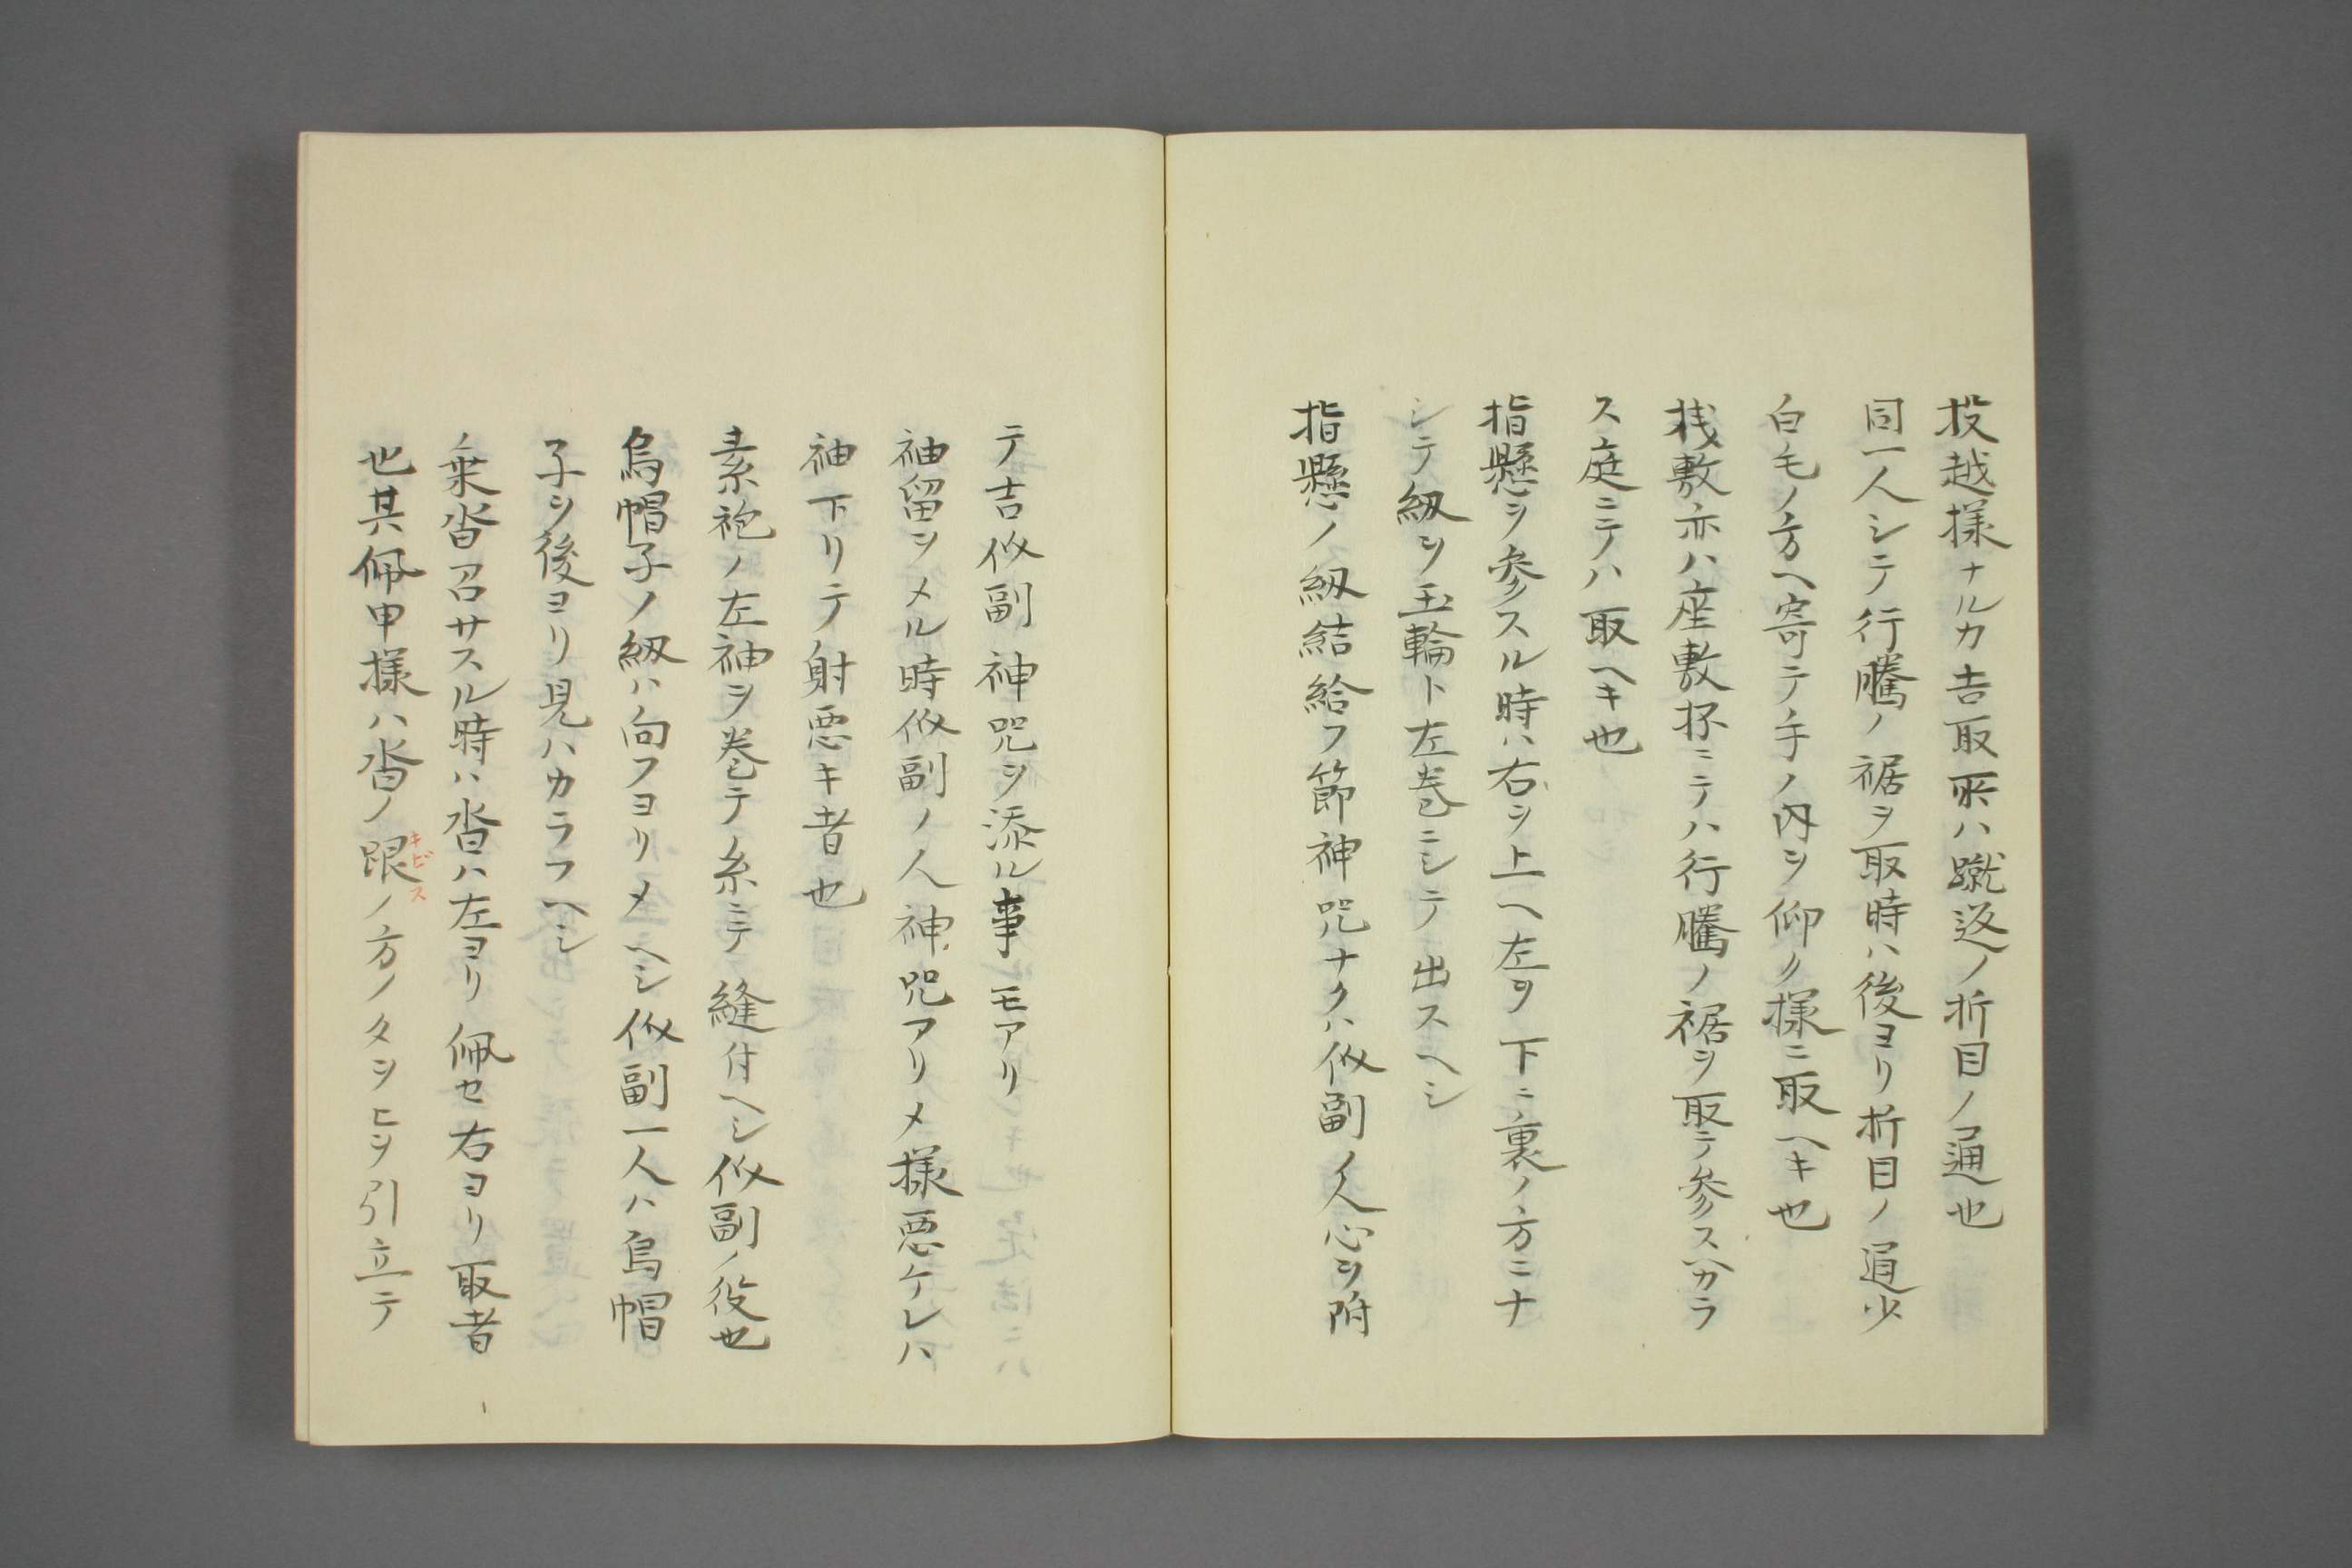 投越様ナルカ吉取所ハ蹴返ノ折目ノ通也
同一人シテ行騰ノ裾ヲ取時ハ後ヨリ折目ノ通少
白毛ノ方ヘ寄テ手ノ内ヲ仰ク様ニ取ヘキ也
桟敷亦ハ座敷抔ニテハ行騰ノ裾ヲ取テ参スヘカラ
ス庭ニテハ取ヘキ也
指懸ヲ参スル時ハ右ヲ上ヘ左ヲ下ニ裏ノ方ニナ
シテ紐ヲ玉輪ト左巻ニシテ出スヘシ
指懸ノ紐結給フ節神咒ナクハ佽副ノ人心ヲ附
テ吉佽副神咒ヲ添ル事モアリ
袖留ヲメル時佽副ノ人神咒アリメ様悪ケレハ
袖下リテ射悪キ者也
素袍ノ左袖ヲ巻テノ糸ニテ縫付ヘシ佽副ノ役也
烏帽子ノ紐ハ向フヨリメヘシ佽副一人ハ烏帽
子ヲ後ヨリ見ハカラフヘシ
乗沓召サスル時ハ沓ハ左ヨリ佩セ右ヨリ取者
也其佩申様ハ沓ノ跟キビスノ方ノタヲヒヲ引立テ